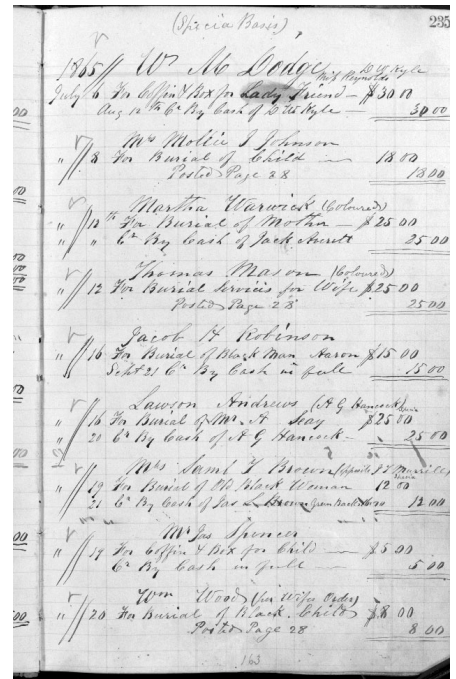 (Specia Basis)
235
1865 // Wm M Dodge D W Kyle
July 6 For Coffin & Box for Lady Friend — Miss Reynolds $30 00
Aug 12th Cr By Cash of D W Kyle 30 00
Mrs Mollie J Johnson
" // 8 For Burial of Child 18 00
Posted Page 28 18 00
Martha Warwick (Coloured)
" // 12th For Burial of Mother $25 00
" " Cr By Cash of Jack Averett 25 00
Thomas Mason (Coloured)
" // 12 For Burial Services for Wife $25 00
Posted Page 28 25 00
Jacob H Robinson
" // 16 For Burial of Black Man Aaron $15 00
Sept 21 Cr By Cash in full 15 00
Lawson Andrews (A G Hancock)
" // 16 For Burial of Mr A Seay $25 00
" 20 Cr By Cash of A G Hancock — 25 00
Mrs Saml T Brown (opposite J T Murrill)
" // 19 For Burial of Old Black Woman 12 00
21 Cr By Cash of Jas 12 00
Mr Jas Spencer
" // 19 For Coffin & Box for Child $5 00
Cr By Cash in full 5 00
Wm Wood (per Wifes Order)
" // 20 For Burial of Black Child $8 00
Posted Page 28 8 00
163